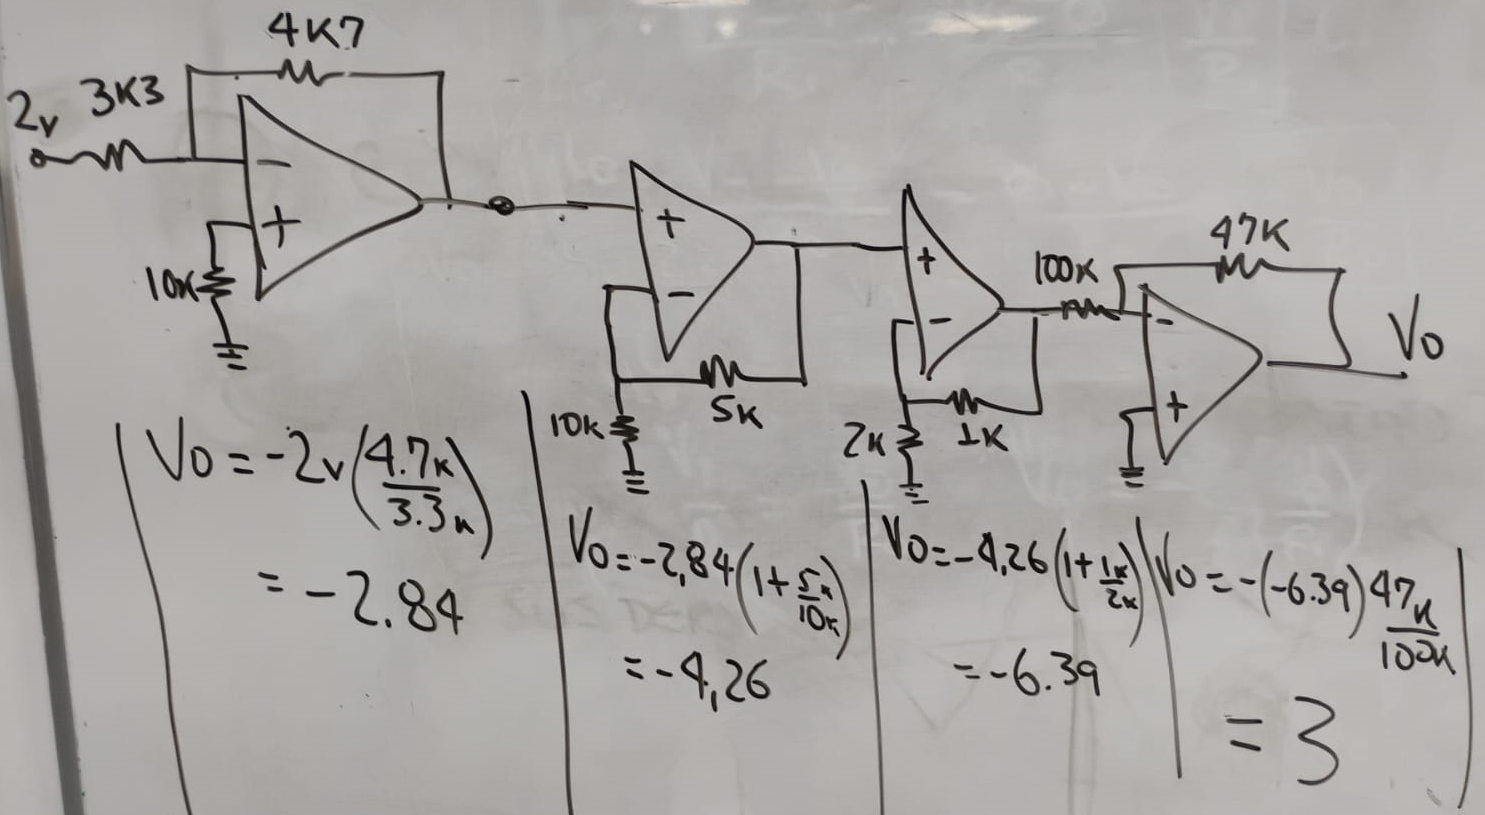 4K7
2v 3K3
-
+
10K
+
-
5K
10K
+
-
1K
2K
100K
47K
-
+
Vo
Vo = -2v (4.7K / 3.3K)
= -2.84
Vo = -2,84 (1 + 5K / 10K)
= -4,26
Vo = -4,26 (1 + 1K / 2K)
= -6.39
Vo = -(-6.39) 47K / 100K
= 3